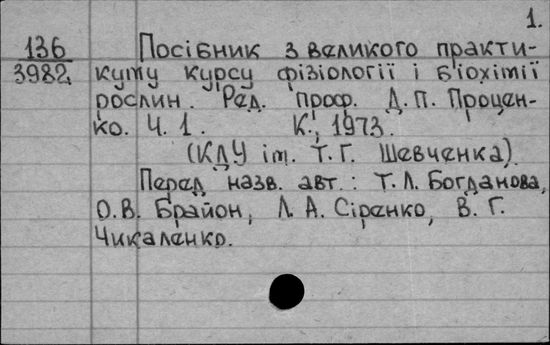 1.
136
3982
Посібник з великого практи-
куму курсу фізіології і біохімії
рослин. Ред. проф. Д.П. Процен-
ко. Ч. 1. К., 1973.
(КДУ ім. Т.Г. Шевченка)
Перед назв. авт.: Т.Л. Богданова,
О.В. Брайон, Л.А. Сіренко, В.Г.
Чикаленко.